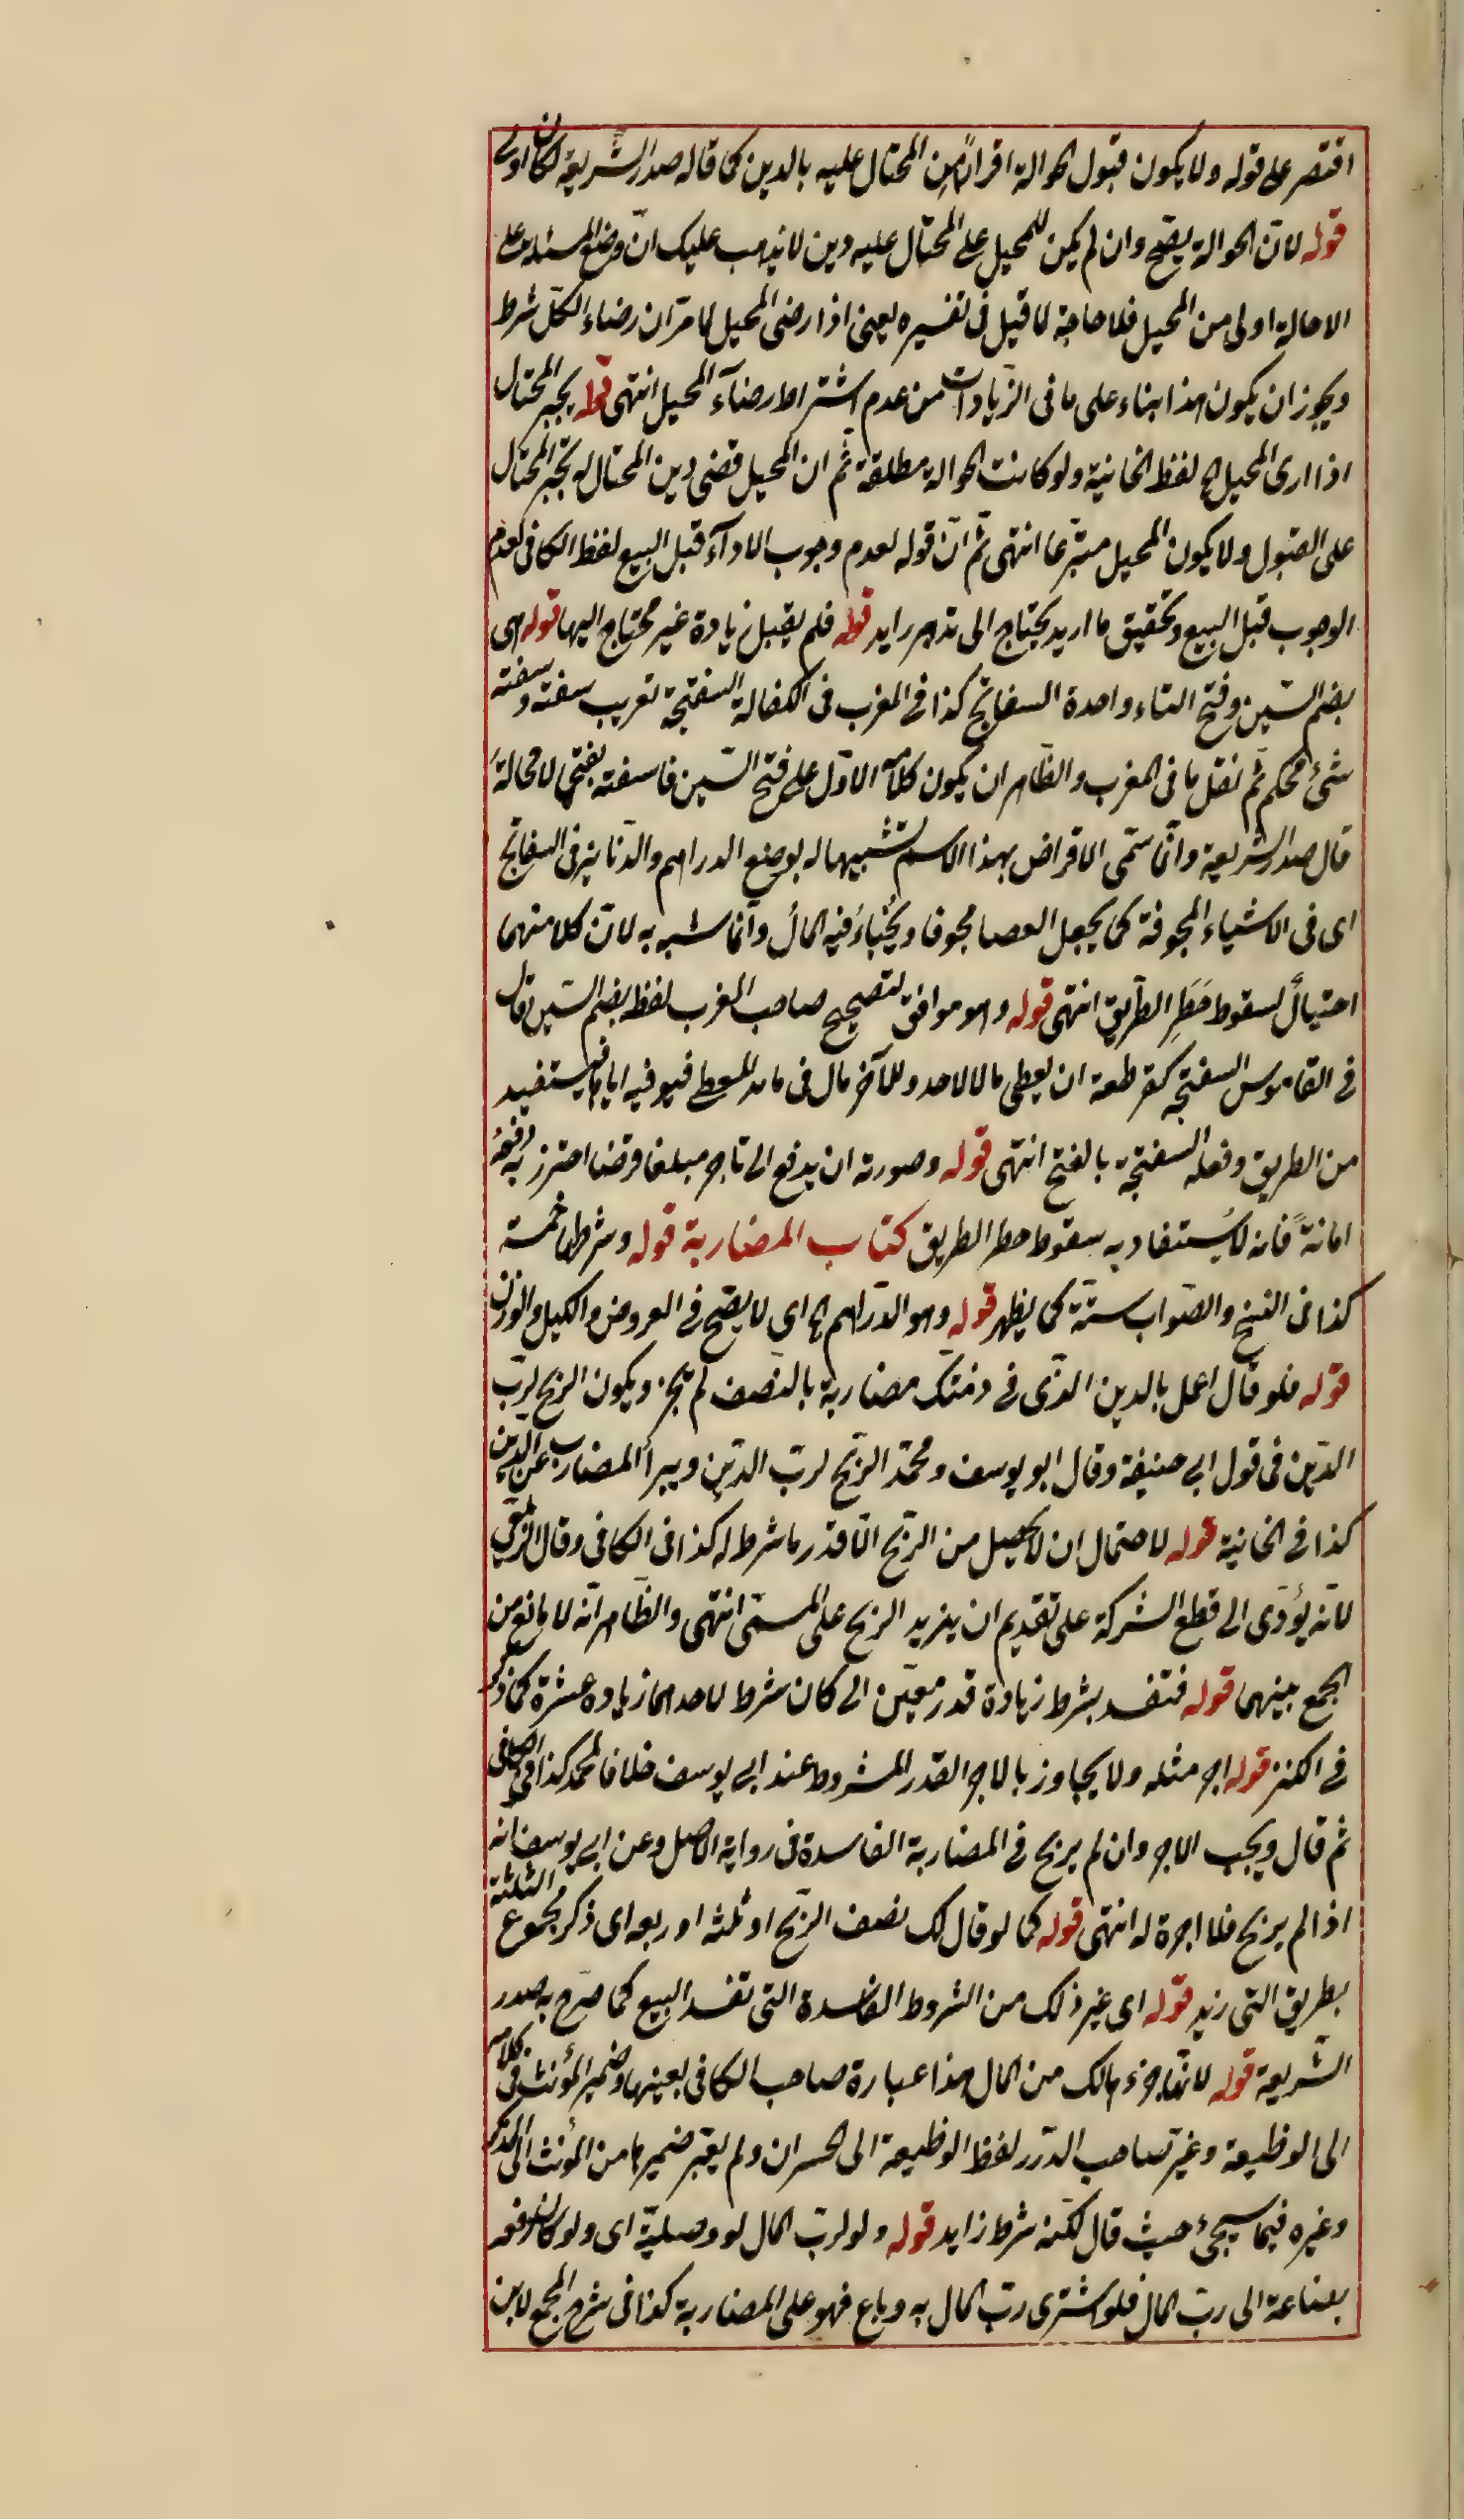 اقتصر على قوله ولا يكون قبول الحوالة اقرارا من المحتال عليه بالدين كما قاله صدر الشريعة لكان اولى
قوله لانّ الحوالة يصحّ وان لم يكن للمحيل على المحتال عليه دين لا يذهب عليك انّ وضع المسئلة على
الاحالة اولى من المحيل فلا حاجة لما قيل فى تفسيره يعنى اذا رضى المحيل لما مرّ ان رضاء الكلّ شرط
ويجوز ان يكون هذا بناء على ما فى الزّيادات من عدم اشتراط رضآء المحيل انتهى قوله يجبر المحتال
اذا ادى المحيل الخ لفظ الخانية ولو كانت الحوالة مطلقة ثم ان المحيل قضى دين المحتال له يجبر المحتال
على القبول ولا يكون المحيل متبرّعا انتهى ثم انّ قوله لعدم وجوب الادآء قبل البيع لفظ الكافى لعدم
الوجوب قبل البيع وتحقيق ما اريد يحتاج الى تدبر زايد قوله فلم يقبل زيادة غير محتاج اليها قوله هى
بضم السّين وفتح التاء واحدة السفاتج كذا فى المغرب فى الكفالة السفتجة تعريب سفته وسفته
شئ محكم ثم نقل ما فى المغرب والظّاهر ان يكون كلامه الاوّل على فتح السّين فا سفته بفتحها لا محالة
قال صدر الشريعة وانّما سمّى الاقراض بهذا الاسم تشبيها له بوضع الدراهم والدّنانير فى السفاتج
اى فى الاشياء المجوفة كما يجعل العصا مجوفا ويُخْبأ فيه المالُ وانّما شبه به لانّ كلا منهما
احتيالٌ لسقوط خَطَرِ الطّريق انتهى قوله وهو موافق لتصحيح صاحب المغرب لفظ بضم السّين وقال
فى القاموس السفتجه كقرطعة ان يعطى مالا لاحد وللآخر مال فى بلد المعطى فيوفيه اياها فيستفيد
من الطريق وفعله السفتجة بالفتح انتهى قوله وصورته ان يدفع الى تاجر مبلغا قرضا احترز به دفعهُ
امانةً فانه لا يُستفاد به سقوط خطر الطريق كتاب المضاربة قوله وشرطها خمسة
كذا فى النسخ والصّواب ستّة كما يظهر قوله وهو الدّراهم الخ اى لا يصّح فى العروض والكيل والوزن
قوله فلو قال اعمل بالدين الذّى فى ذمتك مضاربة بالنصف لم تجز ويكون الربح لربّ
الدّين فى قول ابى حنيفة وقال ابو يوسف ومحمّد الرّبح لربّ الدّين ويبرأ المضارب عن الدّين
كذا فى الخانية قوله لاحتمال ان لا يحصل من الرّبح الّا قدر ما شرط له كذا فى الكافى وقال الزيلعى
لانّه يؤدّى الى قطع الشركة على تقدير ان يزيد الربح على المسمّى انتهى والظّاهر انّه لا مانع من
الجمع بينهما قوله فتفسد بشرط زيادة قدر معيّن اى كان شرط لاحدهما زيادة عشرة كما ذكر
فى الكنز قوله اجر مثله ولا يجاوز بالاجر القدر المشروط عند ابى يوسف خلافا لمحمّد كذا فى الكافى
ثم قال ويجب الاجر وان لم يربح فى المضاربة الفاسدة فى رواية الاصل وعن ابى يوسف انه
اذا لم يربح فلا اجرة له انتهى قوله كما لو قال لك نصف الرّبح او ثلثه او ربعه اى ذكر مجموع الثلثة
بطريق التى زيد قوله اى غير ذلك من الشروط الفاسدة التى تفسد البيع كما صرّح به صدر
الشّريعة قوله لانّها جزء هالك من المال هذا عبارة صاحب الكافى بعينها وضمير المؤنث فى كلامه
الى الوظيعة وغيّر صاحب الدّرر لفظ الوظيعة الى الخسران ولم يغيّر ضميرها من المؤنث الى المذكر
وغيره فيما سيجئ حيث قال لكنّه شرط زايد قوله ولو لربّ المال لو وصليّة اى ولو كان دفعه
بضاعة الى ربّ المال فلو اشترى ربّ المال به وباع فهو على المضاربة كذا فى شرح المجمع لابن